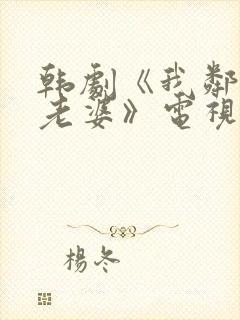 韩劇《我鄰
老婆》電視
楊冬